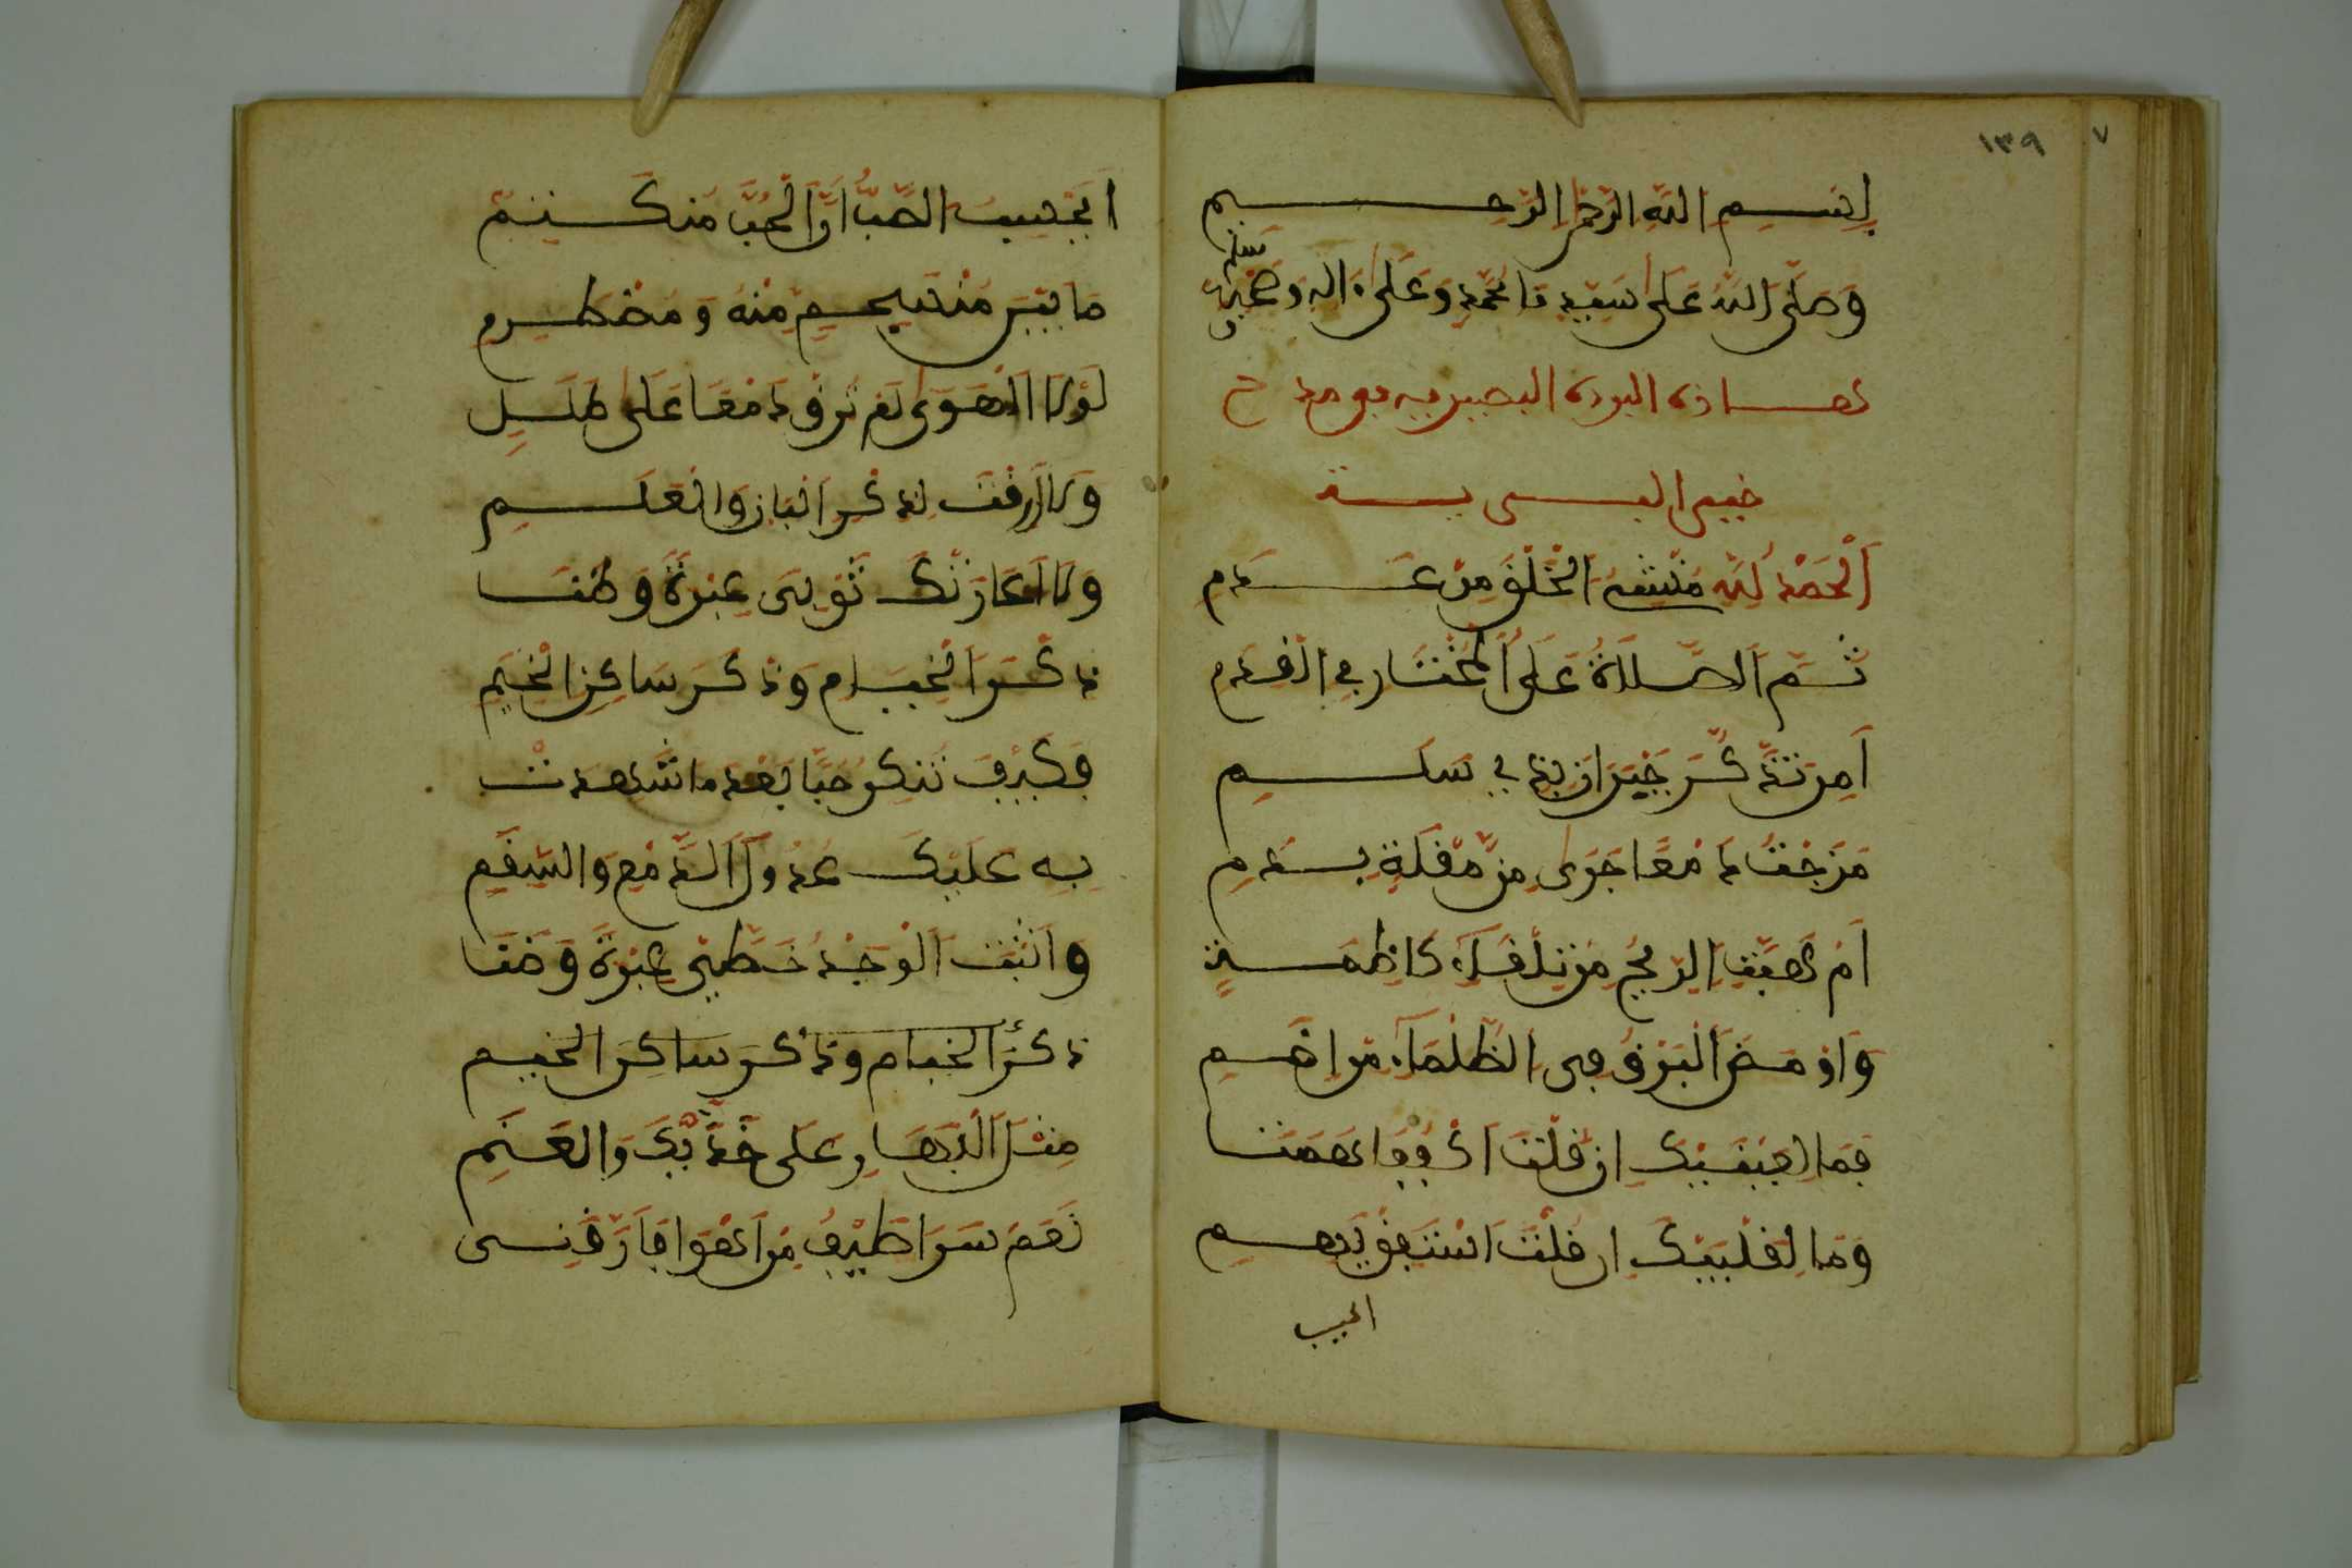 ١٣٩
٧
بِسْمِ اللَّهِ الرَّحْمَٰنِ الرَّحِيمِ
وَصَلَّى اللَّهُ عَلَى سَيِّدِنَا مُحَمَّدٍ وَعَلَى ءَالِهِ وَصَحْبِهِ وَسَلَّمَ
هذه البردة البصيرية في مدح
خير البرية
اَلْحَمْدُ لِلَّهِ مُنْشِئِ الْخَلْقِ مِنْ عَدَمِ
ثُمَّ الصَّلَاةُ عَلَى الْمُخْتَارِ فِي الْقِدَمِ
أَمِنْ تَذَكُّرِ جِيرَانٍ بِذِي سَلَمِ
مَزَجْتَ دَمْعًا جَرَى مِنْ مُقْلَةٍ بِدَمِ
أَمْ هَبَّتِ الرِّيحُ مِنْ تِلْقَاءِ كَاظِمَةٍ
وَأَوْمَضَ الْبَرْقُ فِي الظَّلْمَاءِ مِنْ إِضَمِ
فَمَا لِعَيْنَيْكَ إِنْ قُلْتَ اكْفُفَا هَمَتَا
وَمَا لِقَلْبِكَ إِنْ قُلْتَ اسْتَفِقْ يَهِمِ
أيحسب
أَيَحْسِبُ الصَّبُّ أَنَّ الْحُبَّ مُنْكَتِمٌ
مَا بَيْنَ مُنْسَجِمٍ مِنْهُ وَمُضْطَرِمِ
لَوْلَا الْهَوَى لَمْ تُرِقْ دَمْعًا عَلَى طَلَلِ
وَلَا أَرِقْتَ لِذِكْرِ الْبَانِ وَالْعَلَمِ
وَلَا أَعَارَتْكَ ثَوْبَيْ عَبْرَةٍ وَضَنَا
ذِكْرَى الْخِيَامِ وَذِكْرَ سَاكِنِ الْخِيَمِ
فَكَيْفَ تُنْكِرُ حُبًّا بَعْدَ مَا شَهِدَتْ
بِهِ عَلَيْكَ عُدُولُ الدَّمْعِ وَالسَّقَمِ
وَأَثْبَتَ الْوَجْدُ خَطَّيْ عَبْرَةٍ وَضَنَا
ذكرَ الخيام وذكرَ ساكنِ الخيم
مِثْلَ الْبَهَارِ عَلَى خَدَّيْكَ وَالْعَنَمِ
نَعَمْ سَرَا طَيْفُ مَنْ أَهْوَا فَأَرَّقَنِي